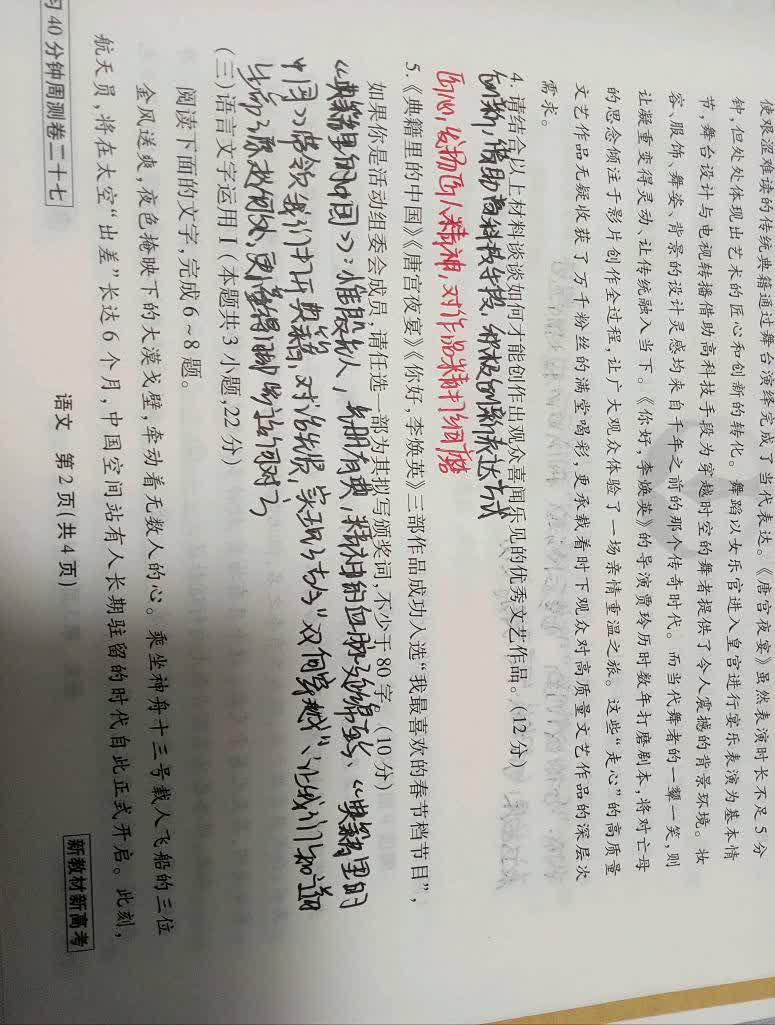 使艰涩难读的传统典籍通过舞台演绎完成了当代表达。《唐宫夜宴》虽然表演时长不足5分
钟,但处处体现出艺术的匠心和创新的转化。舞蹈以女乐官进入皇宫进行宴乐表演为基本情
节,舞台设计与电视转播借助高科技手段为穿越时空的舞者提供了令人震撼的背景环境。妆
容、服饰、舞姿、背景的设计灵感均来自千年之前的那个传奇时代。而当代舞者的一颦一笑,则
让凝重变得灵动、让传统融入当下。《你好,李焕英》的导演贾玲历时数年打磨剧本,将对亡母
的思念倾注于影片创作全过程,让广大观众体验了一场亲情重温之旅。这些“走心”的高质量
文艺作品无疑收获了万千粉丝的满堂喝彩,更承载着时下观众对高质量文艺作品的深层次
需求。
4. 请结合以上材料谈谈如何才能创作出观众喜闻乐见的优秀文艺作品。(12分)
创新,借助高科技手段,积极创新表达方式
匠心,发扬匠人精神,对作品精打细磨
5.《典籍里的中国》《唐宫夜宴》《你好,李焕英》三部作品成功入选“我最喜欢的春节档节目”,
如果你是活动组委会成员,请任选一部为其拟写颁奖词,不少于80字。(10分)
《典籍里的中国》:惟殷先人,有册有典,精神的血脉 《典籍里的
中国》带领我们打开典籍,对话先贤,实现了古今“双向穿越”,让我们知道
生命之源于何处,更懂得脚步迈向何方
(三)语言文字运用Ⅰ(本题共3小题,22分)
阅读下面的文字,完成6~8题。
金风送爽,夜色掩映下的大漠戈壁,牵动着无数人的心。乘坐神舟十三号载人飞船的三位
航天员,将在太空“出差”长达6个月,中国空间站有人长期驻留的时代自此正式开启。此刻,
习40分钟周测卷二十七
语文 第2页(共4页)
新教材新高考